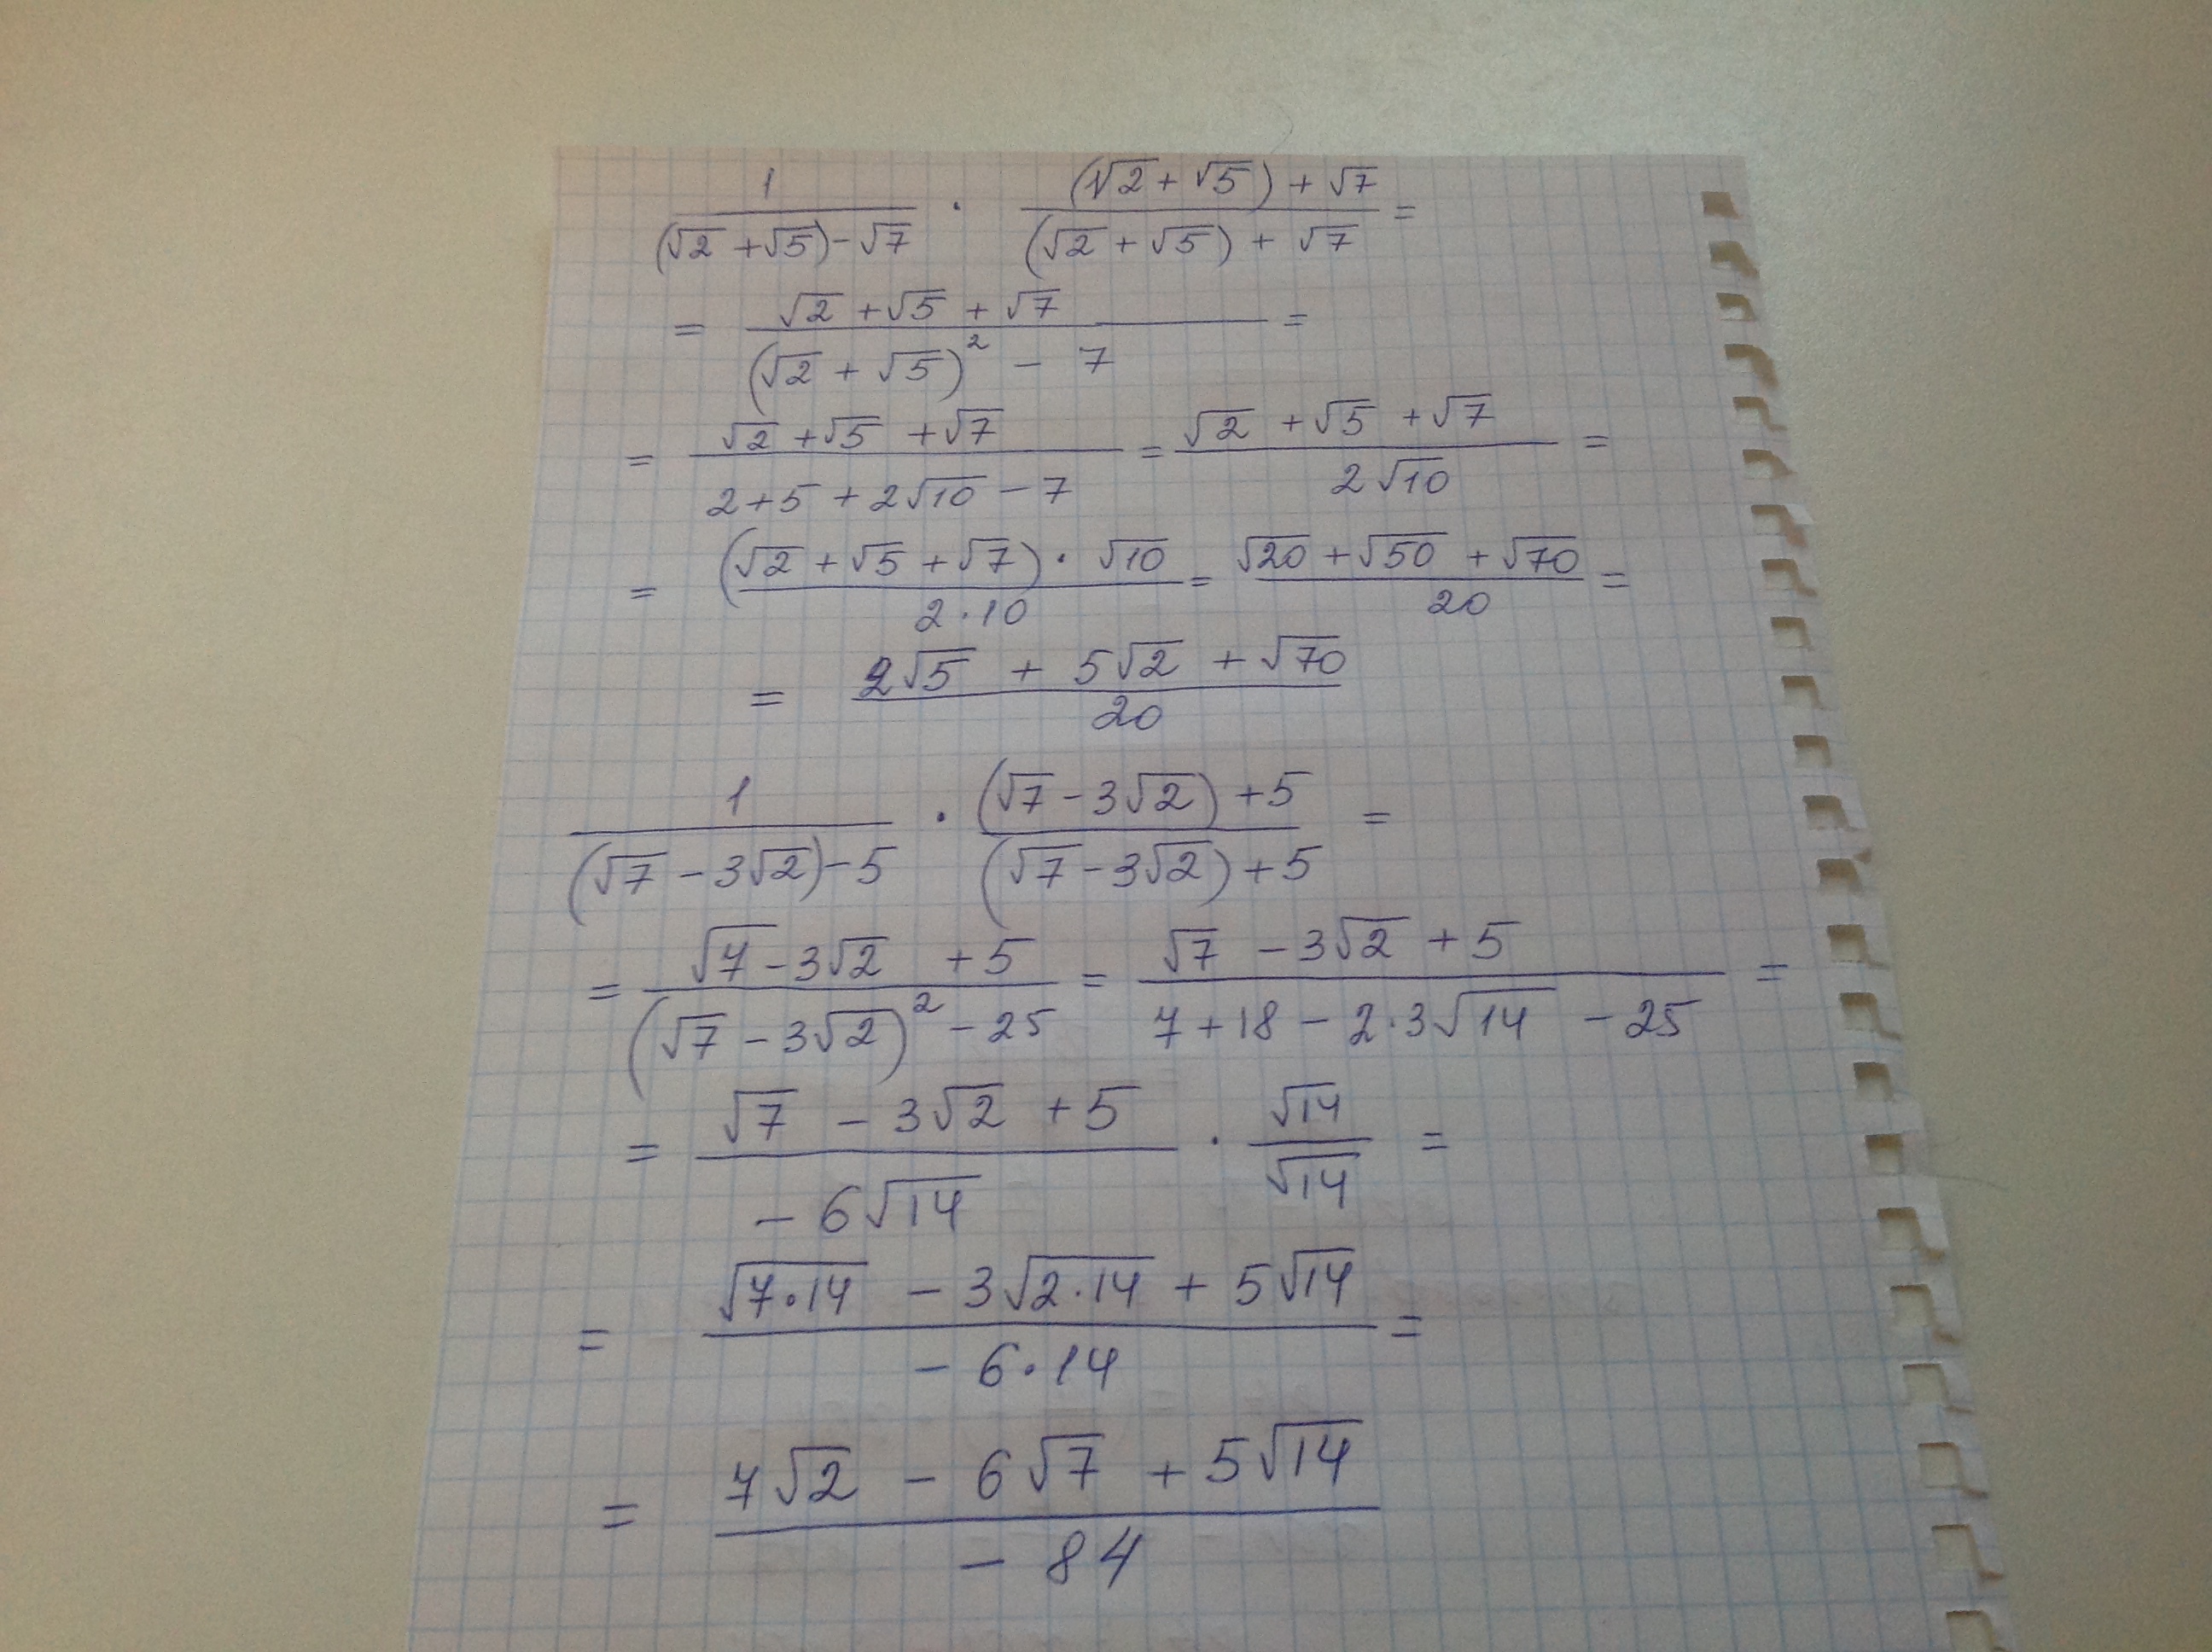 1/((√2 + √5) - √7) · ((√2 + √5) + √7)/((√2 + √5) + √7) =
= (√2 + √5 + √7)/((√2 + √5)² - 7) =
= (√2 + √5 + √7)/(2 + 5 + 2√10 - 7) = (√2 + √5 + √7)/(2√10) =
= ((√2 + √5 + √7) · √10)/(2 · 10) = (√20 + √50 + √70)/20 =
= (2√5 + 5√2 + √70)/20
1/((√7 - 3√2) - 5) · ((√7 - 3√2) + 5)/((√7 - 3√2) + 5) =
= (√7 - 3√2 + 5)/((√7 - 3√2)² - 25) = (√7 - 3√2 + 5)/(7 + 18 - 2·3√14 - 25) =
= (√7 - 3√2 + 5)/(-6√14) · √14/√14 =
= (√(7·14) - 3√(2·14) + 5√14)/(-6·14) =
= (7√2 - 6√7 + 5√14)/(-84)